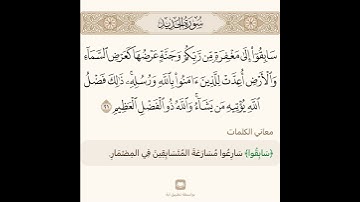 سُورَةُ الحَدِيدِ
سَابِقُوٓا۟ إِلَىٰ مَغْفِرَةٍ مِّن رَّبِّكُمْ وَجَنَّةٍ عَرْضُهَا كَعَرْضِ ٱلسَّمَآءِ
وَٱلْأَرْضِ أُعِدَّتْ لِلَّذِينَ ءَامَنُوا۟ بِٱللَّهِ وَرُسُلِهِۦ ۚ ذَٰلِكَ فَضْلُ
ٱللَّهِ يُؤْتِيهِ مَن يَشَآءُ ۚ وَٱللَّهُ ذُو ٱلْفَضْلِ ٱلْعَظِيمِ ٢١
معاني الكلمات
﴿سَابِقُوا﴾ سَارِعُوا مُسَارَعَةَ المُتَسَابِقِينَ فِي المِضْمَارِ.